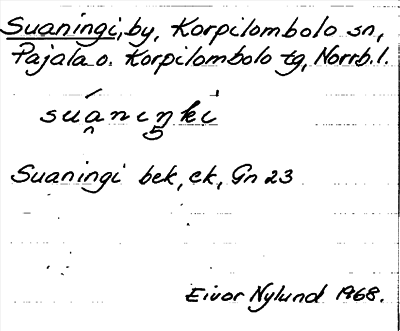 Suaningi, by, Korpilombolo sn,
Pajala o. Korpilombolo tg, Norrb. l.
suaninki
Suaningi bek, ek, Gn 23
Eivor Nylund 1968.